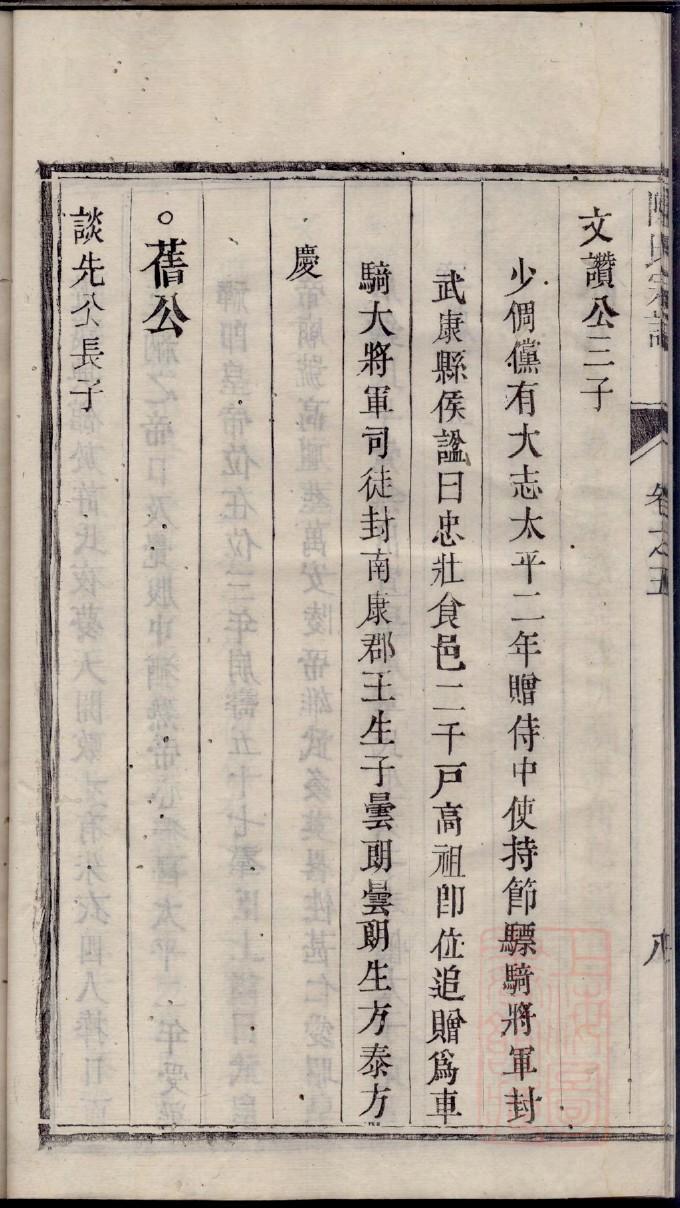 文讚公三子
少倜儻有大志太平二年贈侍中使持節驃騎將軍封
武康縣侯謚曰忠壯食邑二千戸高祖卽位追贈爲車
騎大將軍司徒封南康郡王生子曇朗曇朗生方泰方
慶
。蓿公
談先公長子
卷之五
八